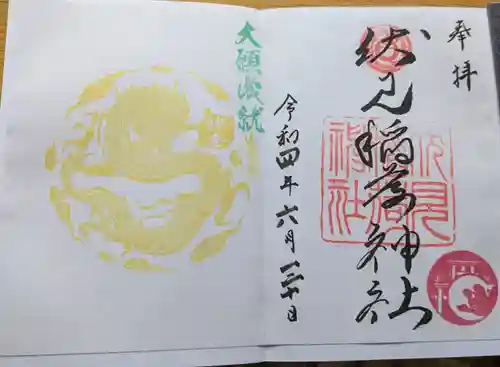 奉拝
伏見稲荷神社
伏見稲荷神社
令和四年六月三十日
大願成就